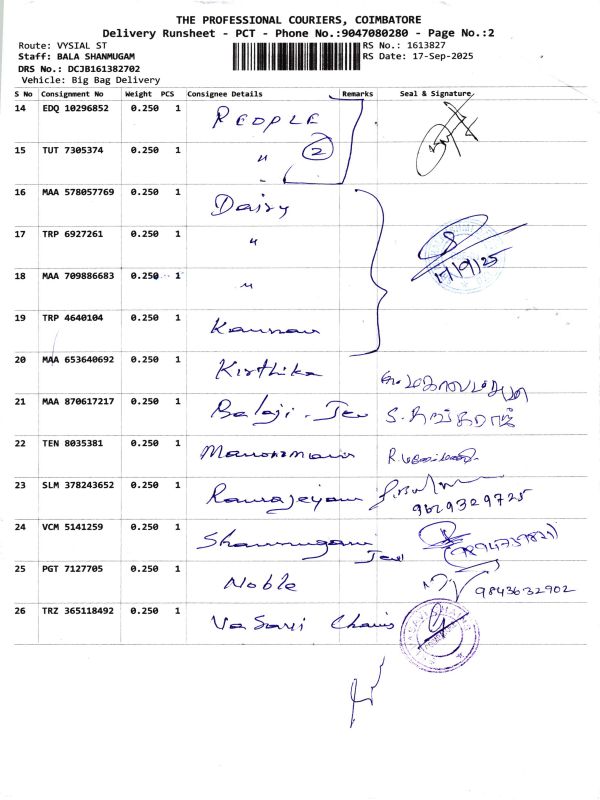 THE PROFESSIONAL COURIERS, COIMBATORE
Delivery Runsheet - PCT - Phone No.:9047080280 - Page No.:2
Route: VYSIAL ST
RS No.: 1613827
Staff: BALA SHANMUGAM
RS Date: 17-Sep-2025
DRS No.: DCJB161382702
Vehicle: Big Bag Delivery
S No Consignment No Weight PCS Consignee Details Remarks Seal & Signature
14 EDQ 10296852 0.250 1 PEOPLE
15 TUT 7305374 0.250 1 " 2
16 MAA 578057769 0.250 1 Dairy
17 TRP 6927261 0.250 1 "
17/9/25
18 MAA 709886683 0.250 1 "
19 TRP 4640104 0.250 1 Kannan
20 MAA 653640692 0.250 1 Kirthika
21 MAA 870617217 0.250 1 Balaji - Jew
22 TEN 8035381 0.250 1
23 SLM 378243652 0.250 1 Ramajeyam
9629329725
24 VCM 5141259 0.250 1 Shanmugam Jew
25 PGT 7127705 0.250 1 Noble 9843632902
26 TRZ 365118492 0.250 1 Vasavi Chains